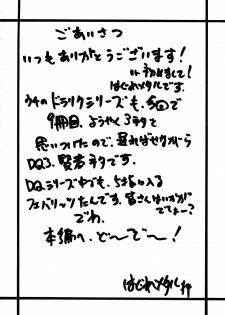 ごあいさつ
いつもありがとうございます!
初めまして!
はぐれメタルです。
うちのドラクエシリーズも、今回で
9冊目、ようやく3ネタと
思いついたので、遅ればせながら
DQ3、賢者ネタです。
DQシリーズ中でも、5指に入る
フェバリットたんです。皆さんはいかが
でしょー?
でわ、
本編へ、ど〜で〜!
はぐれメタル